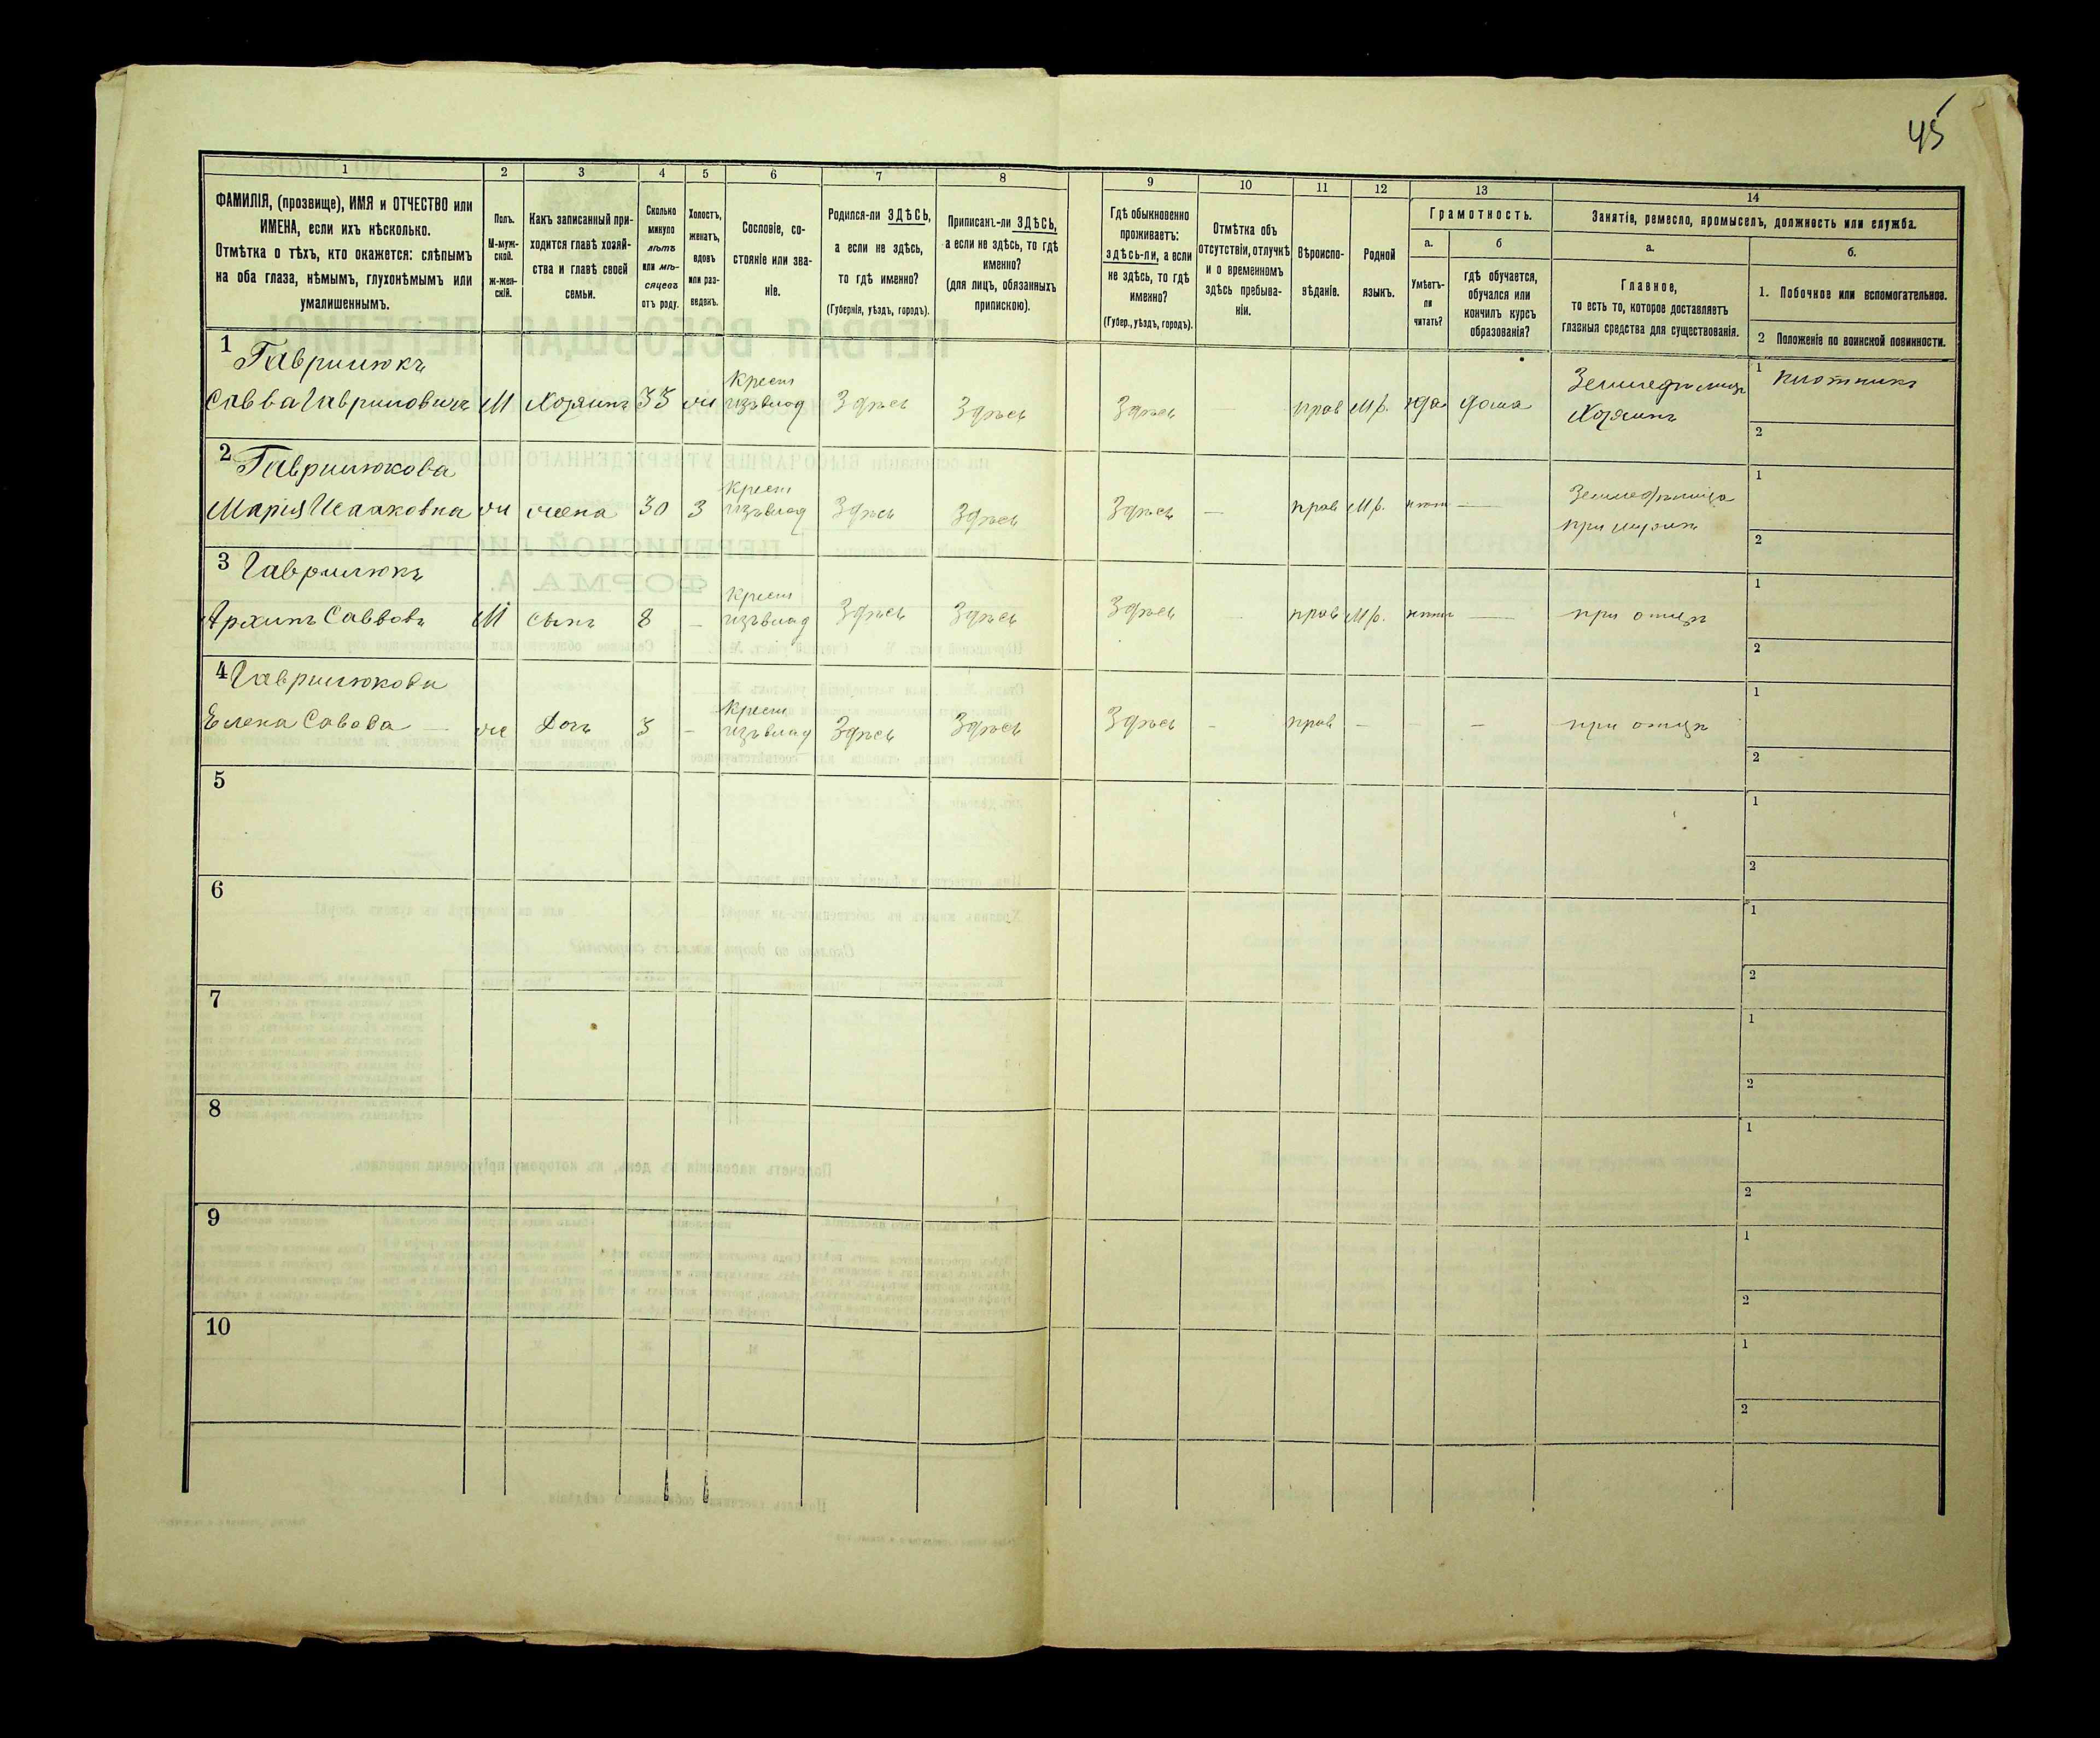 45
1
2
3
4
5
6
7
8
9
10
11
12
13
14
ФАМИЛІЯ, (прозвище), ИМЯ и ОТЧЕСТВО или
ИМЕНА, если ихъ нѣсколько.
Отмѣтка о тѣхъ, кто окажется: слѣпымъ
на оба глаза, нѣмымъ, глухонѣмымъ или
умалишеннымъ.
Полъ.
М-муж-
ской.
Ж-жен-
скій.
Какъ записанный при-
ходится главѣ хозяй-
ства и главѣ своей
семьи.
Сколько
минуло
лѣтъ
или мѣ-
сяцевъ
отъ роду.
Холостъ,
женатъ,
вдовъ
или раз-
веденъ.
Сословіе, со-
стояніе или зва-
ніе.
Родился-ли ЗДѢСЬ,
а если не здѣсь,
то гдѣ именно?
(Губернія, уѣздъ, городъ).
Приписанъ-ли ЗДѢСЬ,
а если не здѣсь, то гдѣ
именно?
(для лицъ, обязанныхъ
припискою).
Гдѣ обыкновенно
проживаетъ:
здѣсь-ли, а если
не здѣсь, то гдѣ
именно?
(Губер., уѣздъ, городъ).
Отмѣтка объ
отсутствіи, отлучкѣ
и о временномъ
здѣсь пребыва-
ніи.
Вѣроиспо-
вѣданіе.
Родной
языкъ.
Грамотность.
а.
б
Умѣетъ-
ли
читать?
гдѣ обучается,
обучался или
кончилъ курсъ
образованія?
Занятіе, ремесло, промыселъ, должность или служба.
а.
б.
Главное,
то есть то, которое доставляетъ
главныя средства для существованія.
1. Побочное или вспомогательное.
2 Положеніе по воинской повинности.
1 Гаврилюкъ
Савва Гавриловичъ М Хозяинъ 35 ж Крест изъвлад Здѣсь Здѣсь Здѣсь — прав М р. да дома Земледѣлецъ Хозяинъ
1 плотникъ
2
2 Гаврилюкова
Марія Исааковна ж жена 30 З Крест изъвлад Здѣсь Здѣсь Здѣсь — прав М р. нѣтъ — Земледѣлица при мужѣ
1
2
3 Гаврилюкъ
Архипъ Саввовъ М сынъ 8 — Крест изъвлад Здѣсь Здѣсь Здѣсь — прав М р. нѣтъ — при отцѣ
1
2
4 Гаврилюкова
Елена Савова — ж Дочь 3 — Крест изъвлад Здѣсь Здѣсь Здѣсь — прав — — — при отцѣ
1
2
5
1
2
6
1
2
7
1
2
8
1
2
9
1
2
10
1
2